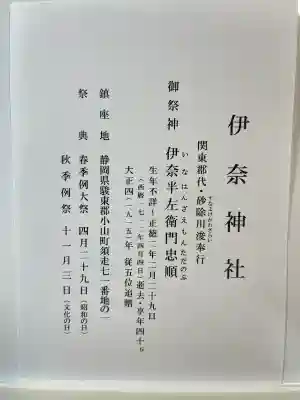 伊奈神社
関東郡代・砂除川浚奉行
すなよけかわざらい
御祭神 伊奈半左衛門忠順
いなはんざえもんただのぶ
生年不詳~正徳二年二月二十九日
(西暦一七一二年四月四日)逝去・享年四十
大正四(一九一五)年 従五位追贈
鎮座地 静岡県駿東郡小山町須走七一番地の一
祭典 春季例大祭 四月二十九日(昭和の日)
秋季例祭 十一月三日(文化の日)